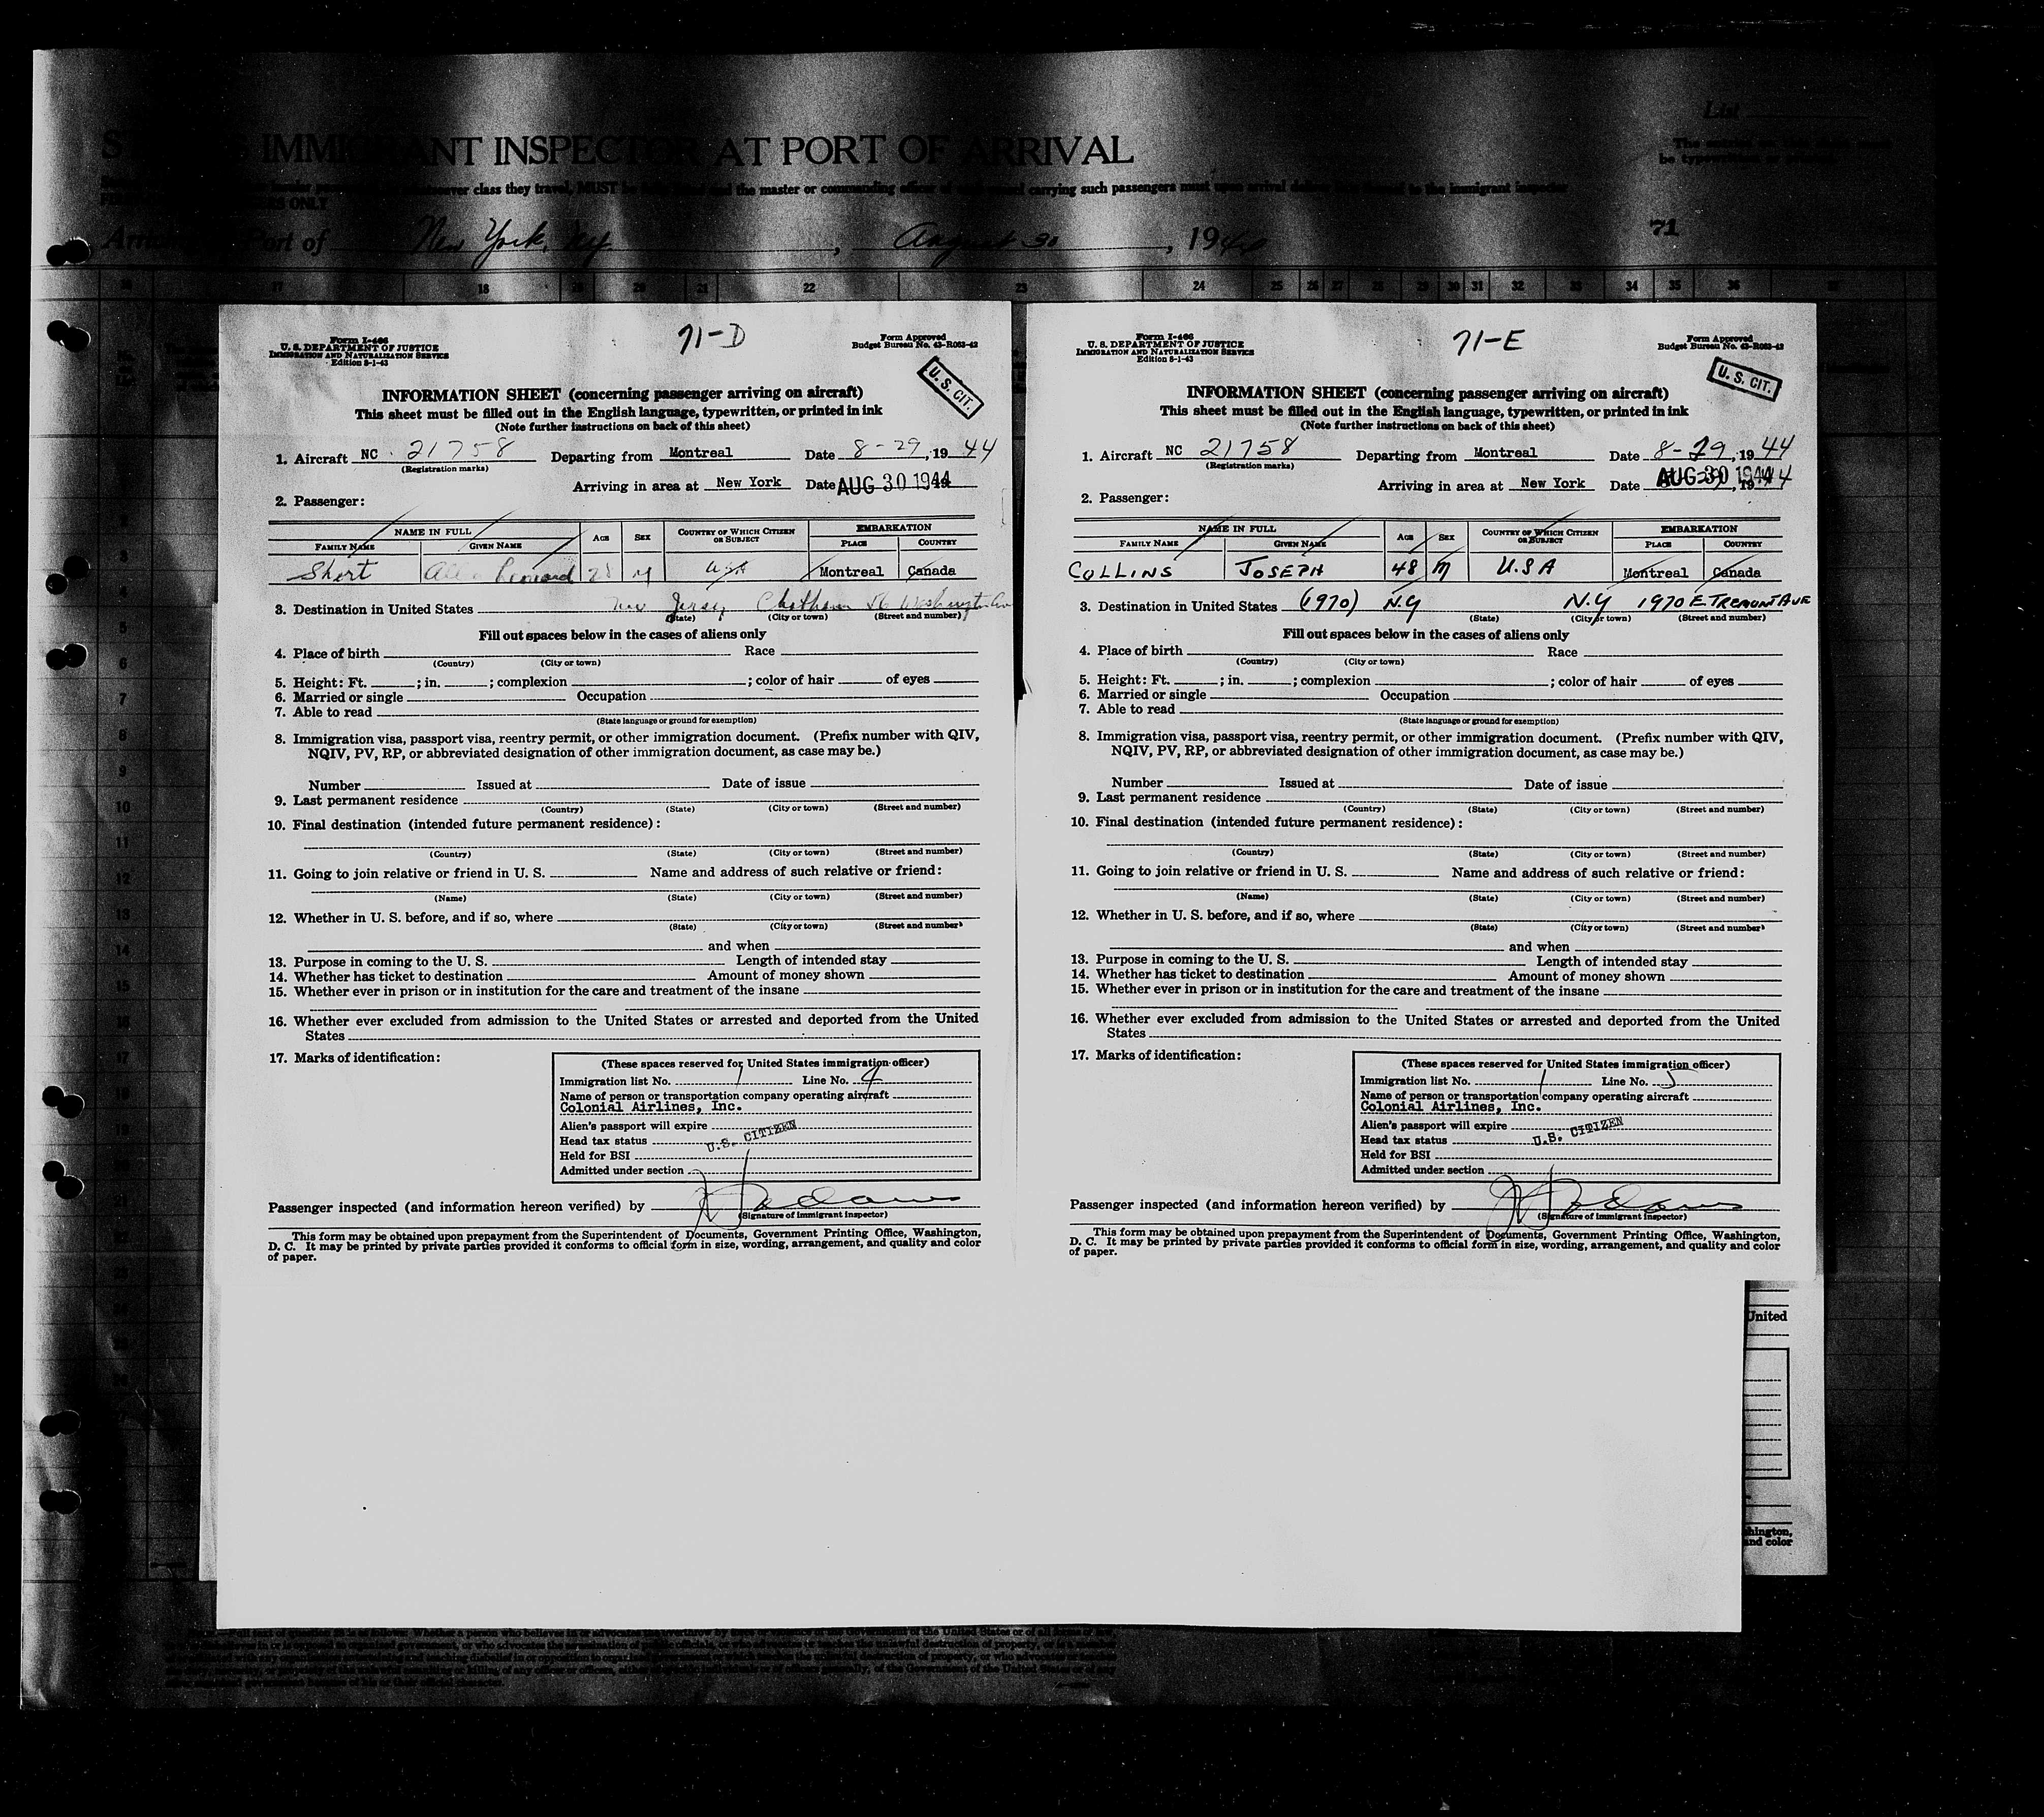 List
IMMIGRANT INSPECTOR AT PORT OF ARRIVAL
Port of New York, Ny , August 30 , 1944
71
17 18 20 21 22 23 24 25 26 27 28 29 30 31 32 33 34 35 36
71-D
Form I-466
U. S. DEPARTMENT OF JUSTICE
IMMIGRATION AND NATURALIZATION SERVICE
Edition 8-1-43
Form Approved
Budget Bureau No. 43-R063-42
U. S. CIT.
INFORMATION SHEET (concerning passenger arriving on aircraft)
This sheet must be filled out in the English language, typewritten, or printed in ink
(Note further instructions on back of this sheet)
1. Aircraft NC 21758 Departing from Montreal Date 8-29, 1944
(Registration marks)
Arriving in area at New York Date AUG 30 1944
2. Passenger:
NAME IN FULL AGE SEX COUNTRY OF WHICH CITIZEN OR SUBJECT EMBARKATION
FAMILY NAME GIVEN NAME PLACE COUNTRY
Short Leonard 28 M USA Montreal Canada
3. Destination in United States New Jersey Chatham 56 Washington Av
(State) (City or town) (Street and number)
Fill out spaces below in the cases of aliens only
4. Place of birth Race
(Country) (City or town)
5. Height: Ft. ; in. ; complexion ; color of hair of eyes
6. Married or single Occupation
7. Able to read
(State language or ground for exemption)
8. Immigration visa, passport visa, reentry permit, or other immigration document. (Prefix number with QIV,
NQIV, PV, RP, or abbreviated designation of other immigration document, as case may be.)
Number Issued at Date of issue
9. Last permanent residence
(Country) (State) (City or town) (Street and number)
10. Final destination (intended future permanent residence):
(Country) (State) (City or town) (Street and number)
11. Going to join relative or friend in U. S. Name and address of such relative or friend:
(Name) (State) (City or town) (Street and number)
12. Whether in U. S. before, and if so, where
(State) (City or town) (Street and number)
and when
13. Purpose in coming to the U. S. Length of intended stay
14. Whether has ticket to destination Amount of money shown
15. Whether ever in prison or in institution for the care and treatment of the insane
16. Whether ever excluded from admission to the United States or arrested and deported from the United
States
17. Marks of identification:
(These spaces reserved for United States immigration officer)
Immigration list No. 1 Line No. 4
Name of person or transportation company operating aircraft
Colonial Airlines, Inc.
Alien's passport will expire
Head tax status U.S. CITIZEN
Held for BSI
Admitted under section
Passenger inspected (and information hereon verified) by
(Signature of Immigrant Inspector)
This form may be obtained upon prepayment from the Superintendent of Documents, Government Printing Office, Washington,
D. C. It may be printed by private parties provided it conforms to official form in size, wording, arrangement, and quality and color
of paper.
71-E
Form I-466
U. S. DEPARTMENT OF JUSTICE
IMMIGRATION AND NATURALIZATION SERVICE
Edition 8-1-43
Form Approved
Budget Bureau No. 43-R063-42
U. S. CIT.
INFORMATION SHEET (concerning passenger arriving on aircraft)
This sheet must be filled out in the English language, typewritten, or printed in ink
(Note further instructions on back of this sheet)
1. Aircraft NC 21758 Departing from Montreal Date 8-29, 1944
(Registration marks)
Arriving in area at New York Date AUG 30 1944
2. Passenger:
NAME IN FULL AGE SEX COUNTRY OF WHICH CITIZEN OR SUBJECT EMBARKATION
FAMILY NAME GIVEN NAME PLACE COUNTRY
COLLINS JOSEPH 48 M U.S A Montreal Canada
3. Destination in United States (1970) N.Y N.Y 1970 E TREMONT AVE
(State) (City or town) (Street and number)
Fill out spaces below in the cases of aliens only
4. Place of birth Race
(Country) (City or town)
5. Height: Ft. ; in. ; complexion ; color of hair of eyes
6. Married or single Occupation
7. Able to read
(State language or ground for exemption)
8. Immigration visa, passport visa, reentry permit, or other immigration document. (Prefix number with QIV,
NQIV, PV, RP, or abbreviated designation of other immigration document, as case may be.)
Number Issued at Date of issue
9. Last permanent residence
(Country) (State) (City or town) (Street and number)
10. Final destination (intended future permanent residence):
(Country) (State) (City or town) (Street and number)
11. Going to join relative or friend in U. S. Name and address of such relative or friend:
(Name) (State) (City or town) (Street and number)
12. Whether in U. S. before, and if so, where
(State) (City or town) (Street and number)
and when
13. Purpose in coming to the U. S. Length of intended stay
14. Whether has ticket to destination Amount of money shown
15. Whether ever in prison or in institution for the care and treatment of the insane
16. Whether ever excluded from admission to the United States or arrested and deported from the United
States
17. Marks of identification:
(These spaces reserved for United States immigration officer)
Immigration list No. 1 Line No. 5
Name of person or transportation company operating aircraft
Colonial Airlines, Inc.
Alien's passport will expire
Head tax status U.S. CITIZEN
Held for BSI
Admitted under section
Passenger inspected (and information hereon verified) by
(Signature of Immigrant Inspector)
This form may be obtained upon prepayment from the Superintendent of Documents, Government Printing Office, Washington,
D. C. It may be printed by private parties provided it conforms to official form in size, wording, arrangement, and quality and color
of paper.
United
hington,
and color